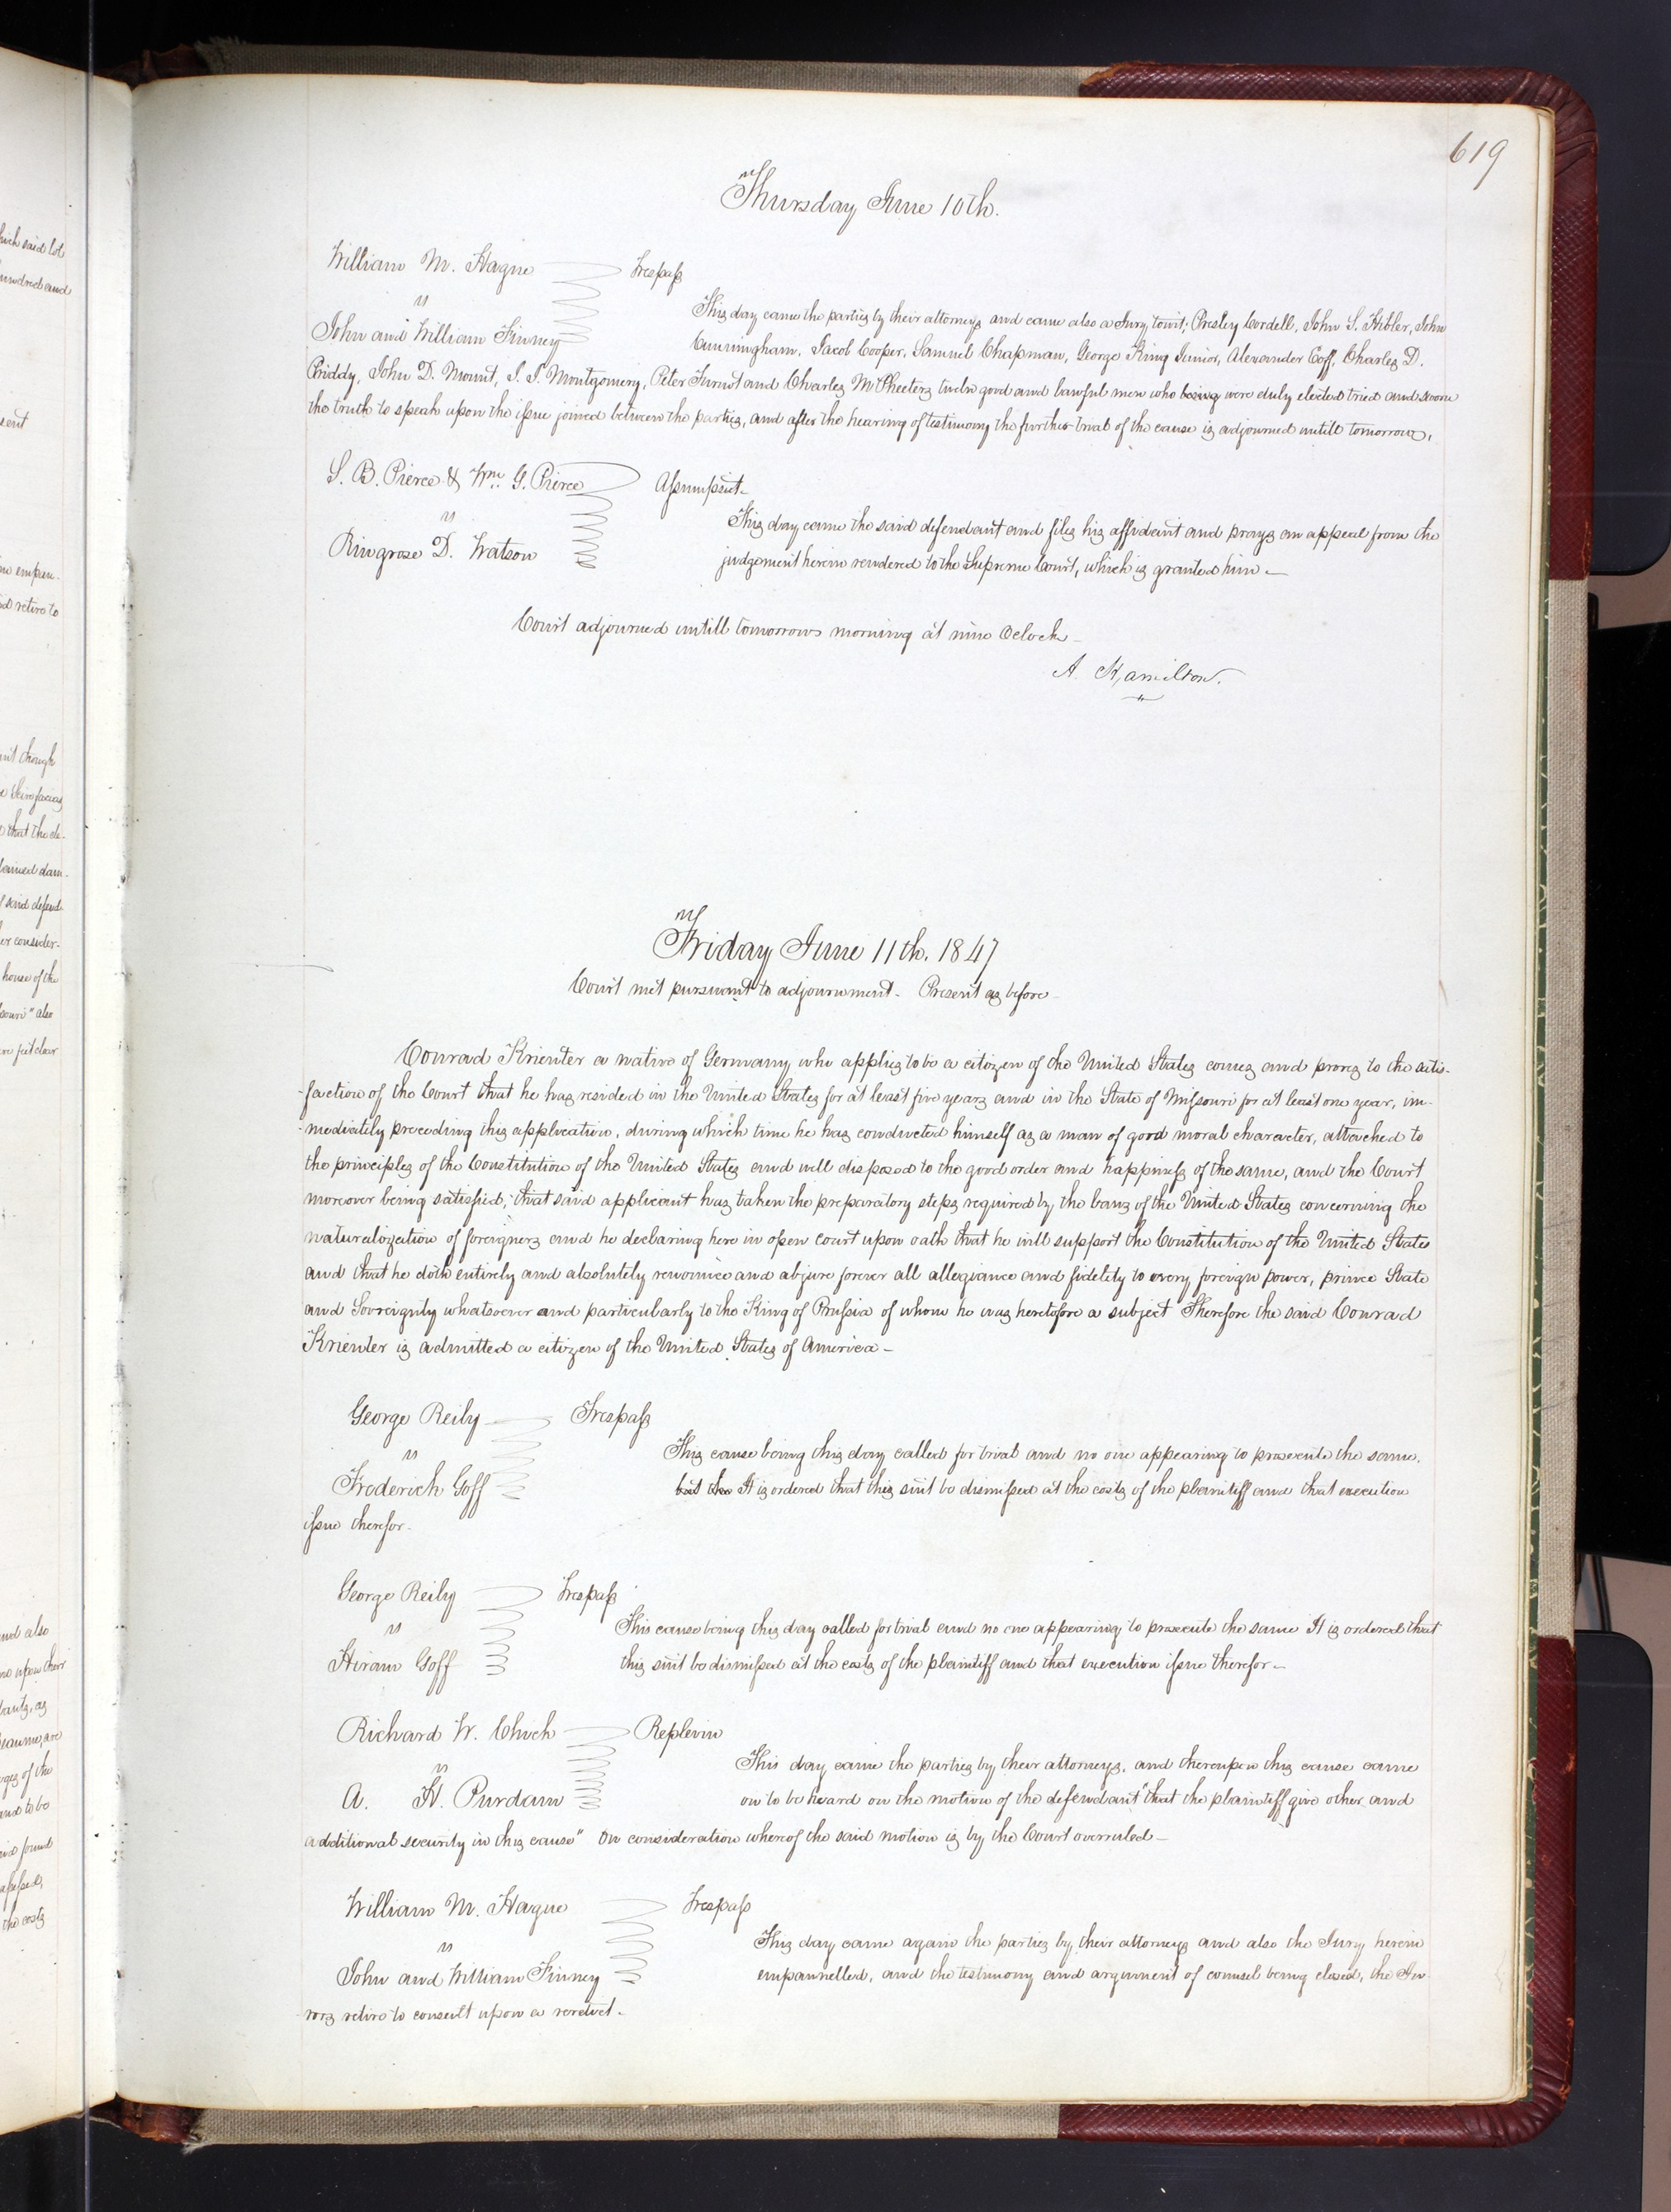 619
Thursday June 10th.
William M. Hague Trespass
vs
This day came the parties by their attorneys and came also a Jury towit; Presley Cordell, John S. Hibler, John
John and William Finney
Cunningham, Jacob Cooper, Samuel Chapman, George King Junior, Alexander Goff, Charles D.
Priddy, John D. Mount, I. I. Montgomery, Peter and Charles McPheeters twelve good and lawful men who being were duly elected tried and sworn
the truth to speak upon the issue joined between the parties, and after the hearing of testimony the further trial of the cause is adjourned untill tomorrow.
S. B. Pierce & Wm. G. Pierce Assumpsit
vs
This day came the said defendant and files his affidavit and prays an appeal from the
Ringrose D. Watson
judgement herein rendered to the Supreme Court, which is granted him
Court adjourned untill tomorrow morning at nine Oclock
A. Hamilton.
Friday June 11th. 1847
Court met pursuant to adjournment. Present as before
Conrad Krienter a native of Germany who applies to be a citizen of the United States comes and proves to the satis-
-faction of the Court that he has resided in the United States for at least five years and in the State of Missouri for at least one year, im-
-mediately preceeding this application, during which time he has conducted himself as a man of good moral character, attached to
the principles of the Constitution of the United States and well disposed to the good order and happiness of the same, and the Court
moreover being satisfied, that said applicant has taken the preparatory steps required by the laws of the United States concerning the
naturalization of foreigners and he declaring here in open court upon oath that he will support the Constitution of the United States
and that he doth entirely and absolutely renounce and abjure forever all allegiance and fidelity to every foreign power, prince State
and Sovreignty whatsoever and particularly to the King of Prussia of whom he was heretofore a subject Therefore the said Conrad
Krienter is admitted a citizen of the United States of America
George Reily Trespass
vs
This cause being this day called for trial and no one appearing to prosecute the same.
Frederich Goff
It is ordered that this suit be dismissed at the costs of the plaintiff and that execution
issue therefor.
George Reily Trespass
vs
This cause being this day called for trial and no one appearing to prosecute the same It is ordered that
Hiram Goff
this suit be dismissed at the costs of the plaintiff and that execution issue therefor
Richard W. Chick Replevin
vs
This day came the parties by their attorneys, and thereupon this cause came
A. H. Purdam
on to be heard on the motion of the defendant "that the plaintiff give other and
additional security in this cause" On consideration whereof the said motion is by the Court overruled
William M. Hague Trespass
vs
This day came again the parties by their attorneys and also the Jury herein
John and William Finney
empannelled, and the testimony and argument of counsel being closed, the Ju-
-rors retire to consult upon a verdict.